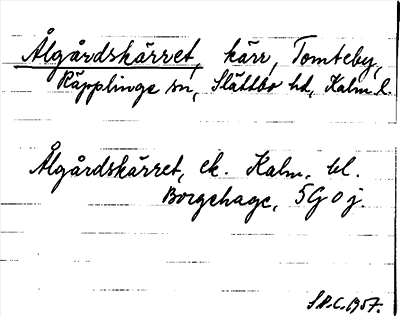 Ålgårdskärret, kärr, Tomteby,
Räpplinge sn, Slättbo hd, Kalm. l.
Ålgårdskärret, ek. Kalm. bl.
Borgehage, 5G0j.
S.P.C. 1957.